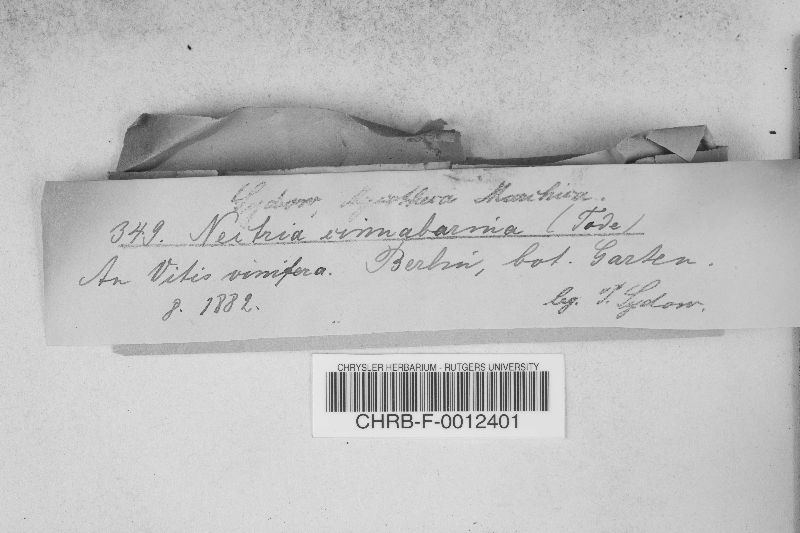 Sydow, Mycotheca Marchica.
349. Nectria cinnabarina (Tode)
An Vitis vinifera. Berlin, bot. Garten.
8. 1882. leg. P. Sydow.
CHRYSLER HERBARIUM - RUTGERS UNIVERSITY
CHRB-F-0012401